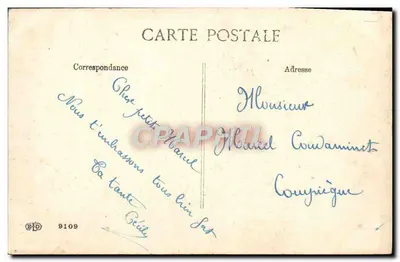 CARTE POSTALE
Correspondance
Adresse
Cher petit Marcel
Nous t'embrassons tous bien fort
Ta tante
Cécile
Monsieur
Marcel Coudaminet
Compiègne
CPAPHIL
ELD 9109